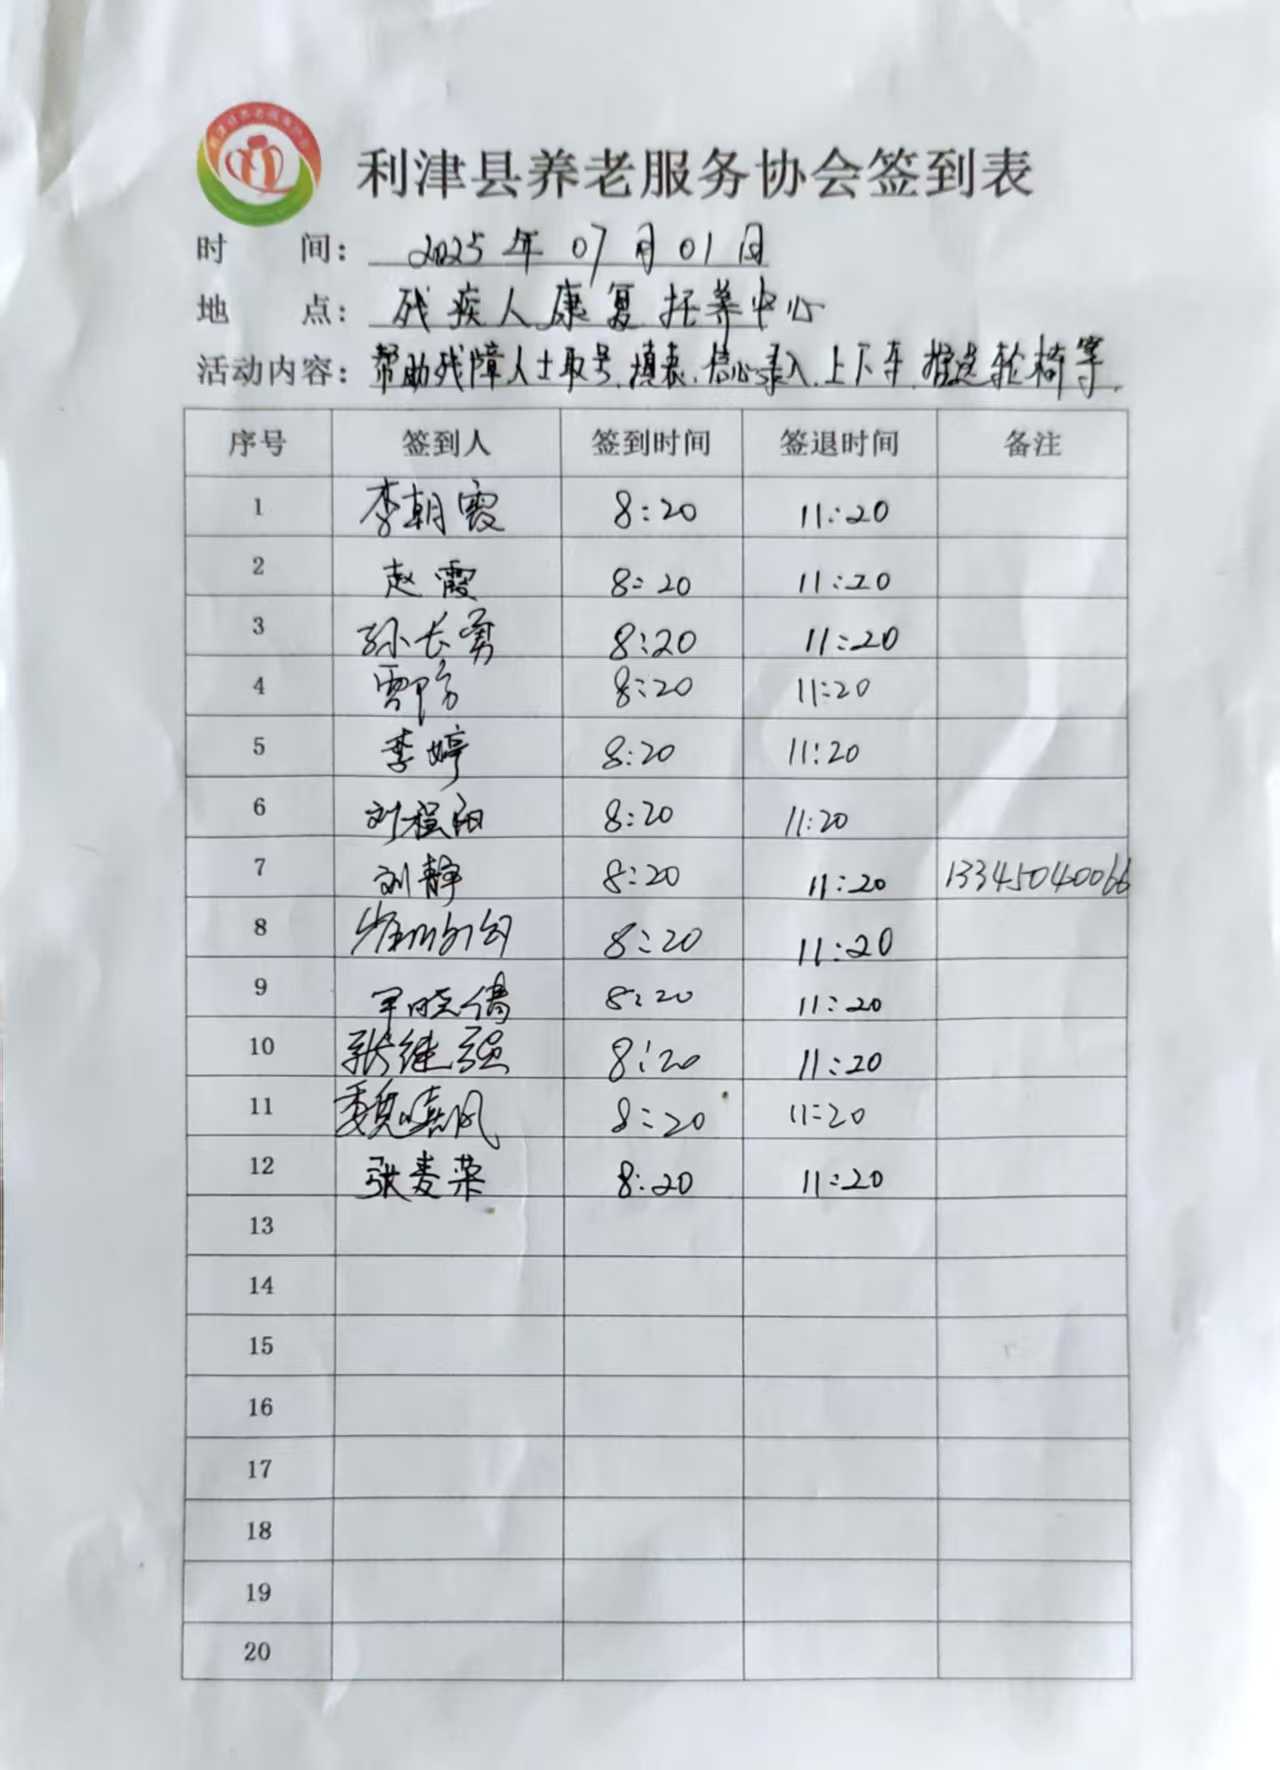 利津县养老服务协会签到表
时 间: 2025年07月01日
地 点: 残疾人康复托养中心
活动内容: 帮助残障人士取号.填表.信心录入.上下车.推送轮椅等.
序号 签到人 签到时间 签退时间 备注
1 李朝霞 8:20 11:20
2 赵霞 8:20 11:20
3 孙长勇 8:20 11:20
4 贾防 8:20 11:20
5 李婷 8:20 11:20
6 刘程阳 8:20 11:20
7 刘静 8:20 11:20 13345040066
8 8:20 11:20
9 晓倩 8:20 11:20
10 张继强 8:20 11:20
11 魏嘻风 8:20 11:20
12 张麦荣 8:20 11:20
13
14
15
16
17
18
19
20